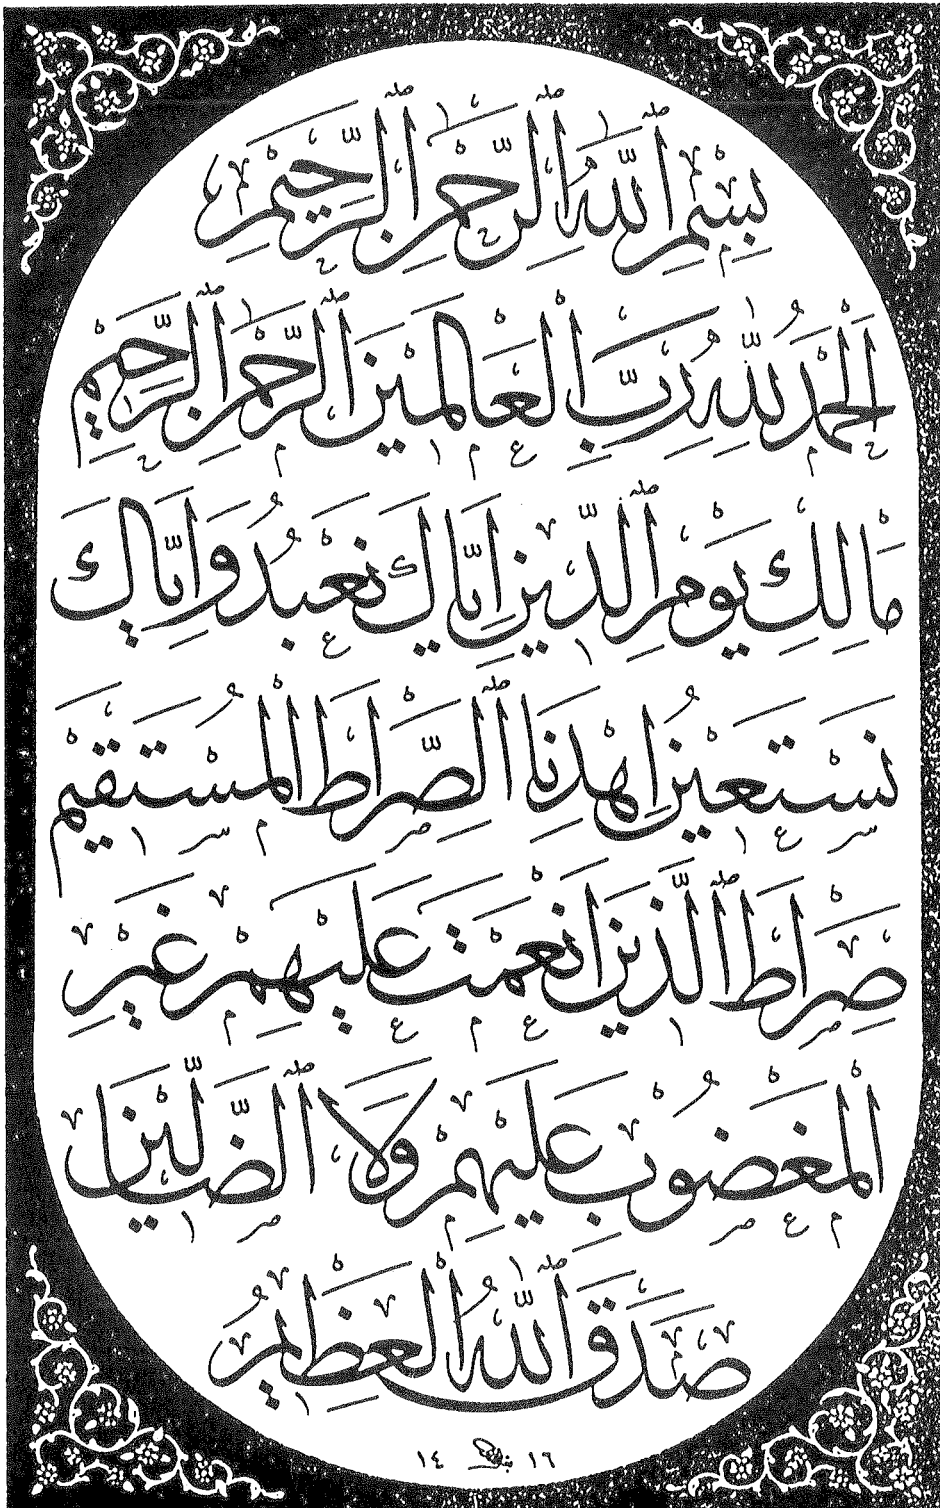 بِسْمِ اللَّهِ الرَّحْمَٰنِ الرَّحِيمِ
الْحَمْدُ لِلَّهِ رَبِّ الْعَالَمِينَ الرَّحْمَٰنِ الرَّحِيمِ
مَالِكِ يَوْمِ الدِّينِ إِيَّاكَ نَعْبُدُ وَإِيَّاكَ
نَسْتَعِينُ اهْدِنَا الصِّرَاطَ الْمُسْتَقِيمَ
صِرَاطَ الَّذِينَ أَنْعَمْتَ عَلَيْهِمْ غَيْرِ
الْمَغْضُوبِ عَلَيْهِمْ وَلَا الضَّالِّينَ
صَدَقَ اللَّهُ الْعَظِيمُ
١٤ ١٦